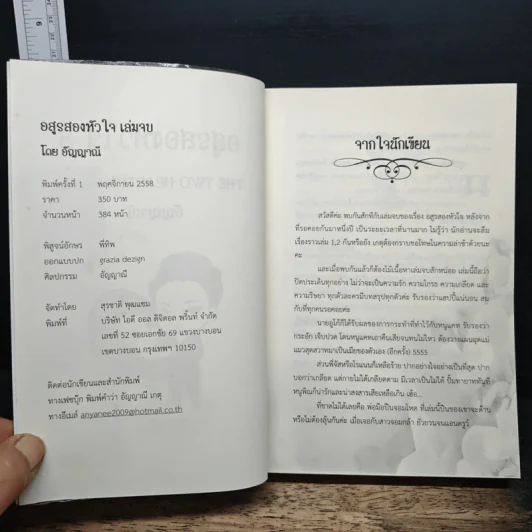 อสูรสองหัวใจ เล่มจบ
โดย อัญญาณี
พิมพ์ครั้งที่ 1 พฤศจิกายน 2558
ราคา 350 บาท
จำนวนหน้า 384 หน้า
พิสูจน์อักษร พี่ทิพ
ออกแบบปก grazia dezign
ศิลปกรรม อัญญาณี
จัดทำโดย สุรชาติ พุฒแซม
พิมพ์ที่ บริษัท ไอดี ออล ดิจิตอล พริ้นท์ จำกัด
เลขที่ 52 ซอยเอกชัย 69 แขวงบางบอน
เขตบางบอน กรุงเทพฯ 10150
ติดต่อนักเขียนและสำนักพิมพ์
ทางเฟซบุ๊ก พิมพ์คำว่า อัญญาณี เกตุ
ทางอีเมล์ anyanee2009@hotmail.co.th
จากใจนักเขียน
สวัสดีค่ะ พบกันสักทีกับเล่มจบของเรื่อง อสูรสองหัวใจ หลังจาก
ที่รอคอยกันมาหนึ่งปี เป็นระยะเวลาที่นานมาก ไม่รู้ว่า นักอ่านจะลืม
เรื่องราวเล่ม 1,2 กันหรือยัง เกตุต้องกราบขอโทษในความล่าช้าด้วยนะ
คะ
และเมื่อพบกันแล้วก็ต้องไม้เนื้อหาเล่มจบสักหน่อย เล่มนี้ถือว่า
ปิดประเด็นทุกอย่าง ไม่ว่าจะเป็นความรัก ความโกรธ ความเกลียด และ
ความริษยา ทุกตัวละครมีบทสรุปทุกตัวค่ะ รับรองว่าแฮปปี้แน่นอน สม
กับที่ทุกคนรอคอยค่ะ
นายอูโก้ก็ได้รับผลของการกระทำที่ทำไว้กับหนูแคท รับรองว่า
กระอัก เจ็บปวด โดนหนูแคทเอาคืนเสียจนทนไม่ไหว ต้องวางแผนจุดแม่
แมวสุดสวาทมาเป็นเมียของตัวเอง (อีกครั้ง) 5555
ส่วนพี่จัสหรือโรแนนก็เหลือร้าย ปากอย่างใจอย่างเป็นที่สุด ปาก
บอกว่าเกลียด แต่กายไม่ได้เกลียดตาม มีเวลาเป็นไม่ได้ ปั๊มทายาททันที
หนูพิณก็น่ารักและน่าสงสารเสียเหลือเกิน เฮ้อ...
ที่ขาดไม่ได้เลยคือ พ่อมือปืนจอมโหด ที่เล่มนี้ปืนของเขาจะด้าน
หรือไม่ต้องลุ้นกันค่ะ เมื่อเจอกับสาวจอมกล้า ยั่วยวนจนแอนดรูว์